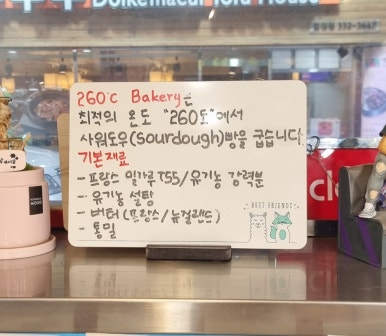 260°C Bakery는
최적의 온도 "260도"에서
사워도우(Sourdough)빵을 굽습니다
기본재료
- 프랑스 밀가루 T55/유기농 강력분
- 유기농 설탕
- 버터(프랑스/뉴질랜드)
- 통밀
BEST FRIENDS